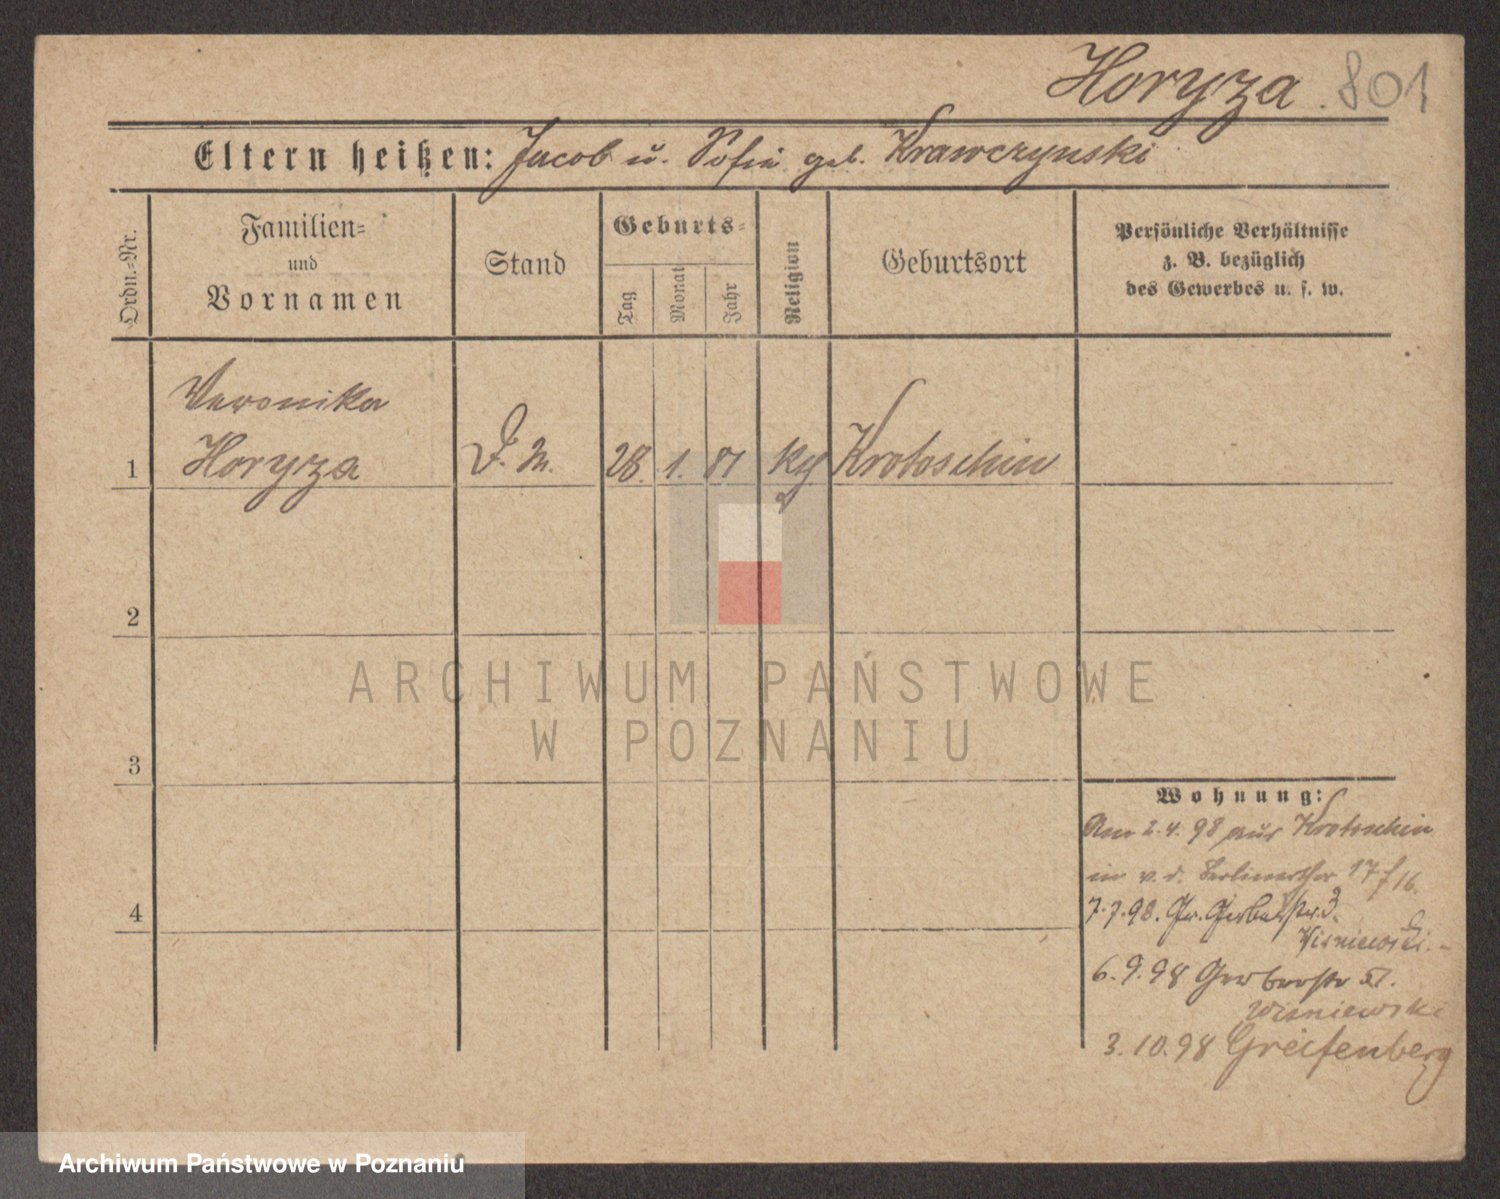 Horyza. 801
Eltern heißen: Jacob u. Sofie geb. Krawczynski
Ordn.-Nr.
Familien-
und
Vornamen
Stand
Geburts-
Tag
Monat
Jahr
Religion
Geburtsort
Persönliche Verhältnisse
z. B. bezüglich
des Gewerbes u. s. w.
Veronika
1 Horyza D. M. 28. 1. 81 kg Krotoschin
2
ARCHIWUM PAŃSTWOWE
W POZNANIU
3
Wohnung:
Am 2.4.98 aus Krotoschin
in v. d. Berlinerthor 17 f 16.
4
7.7.98. Gr. Gerberstr. 3.
Wisniewski.-
6.9.98 Gerberstr
Wisniewski
3.10.98 Greifenberg
Archiwum Państwowe w Poznaniu